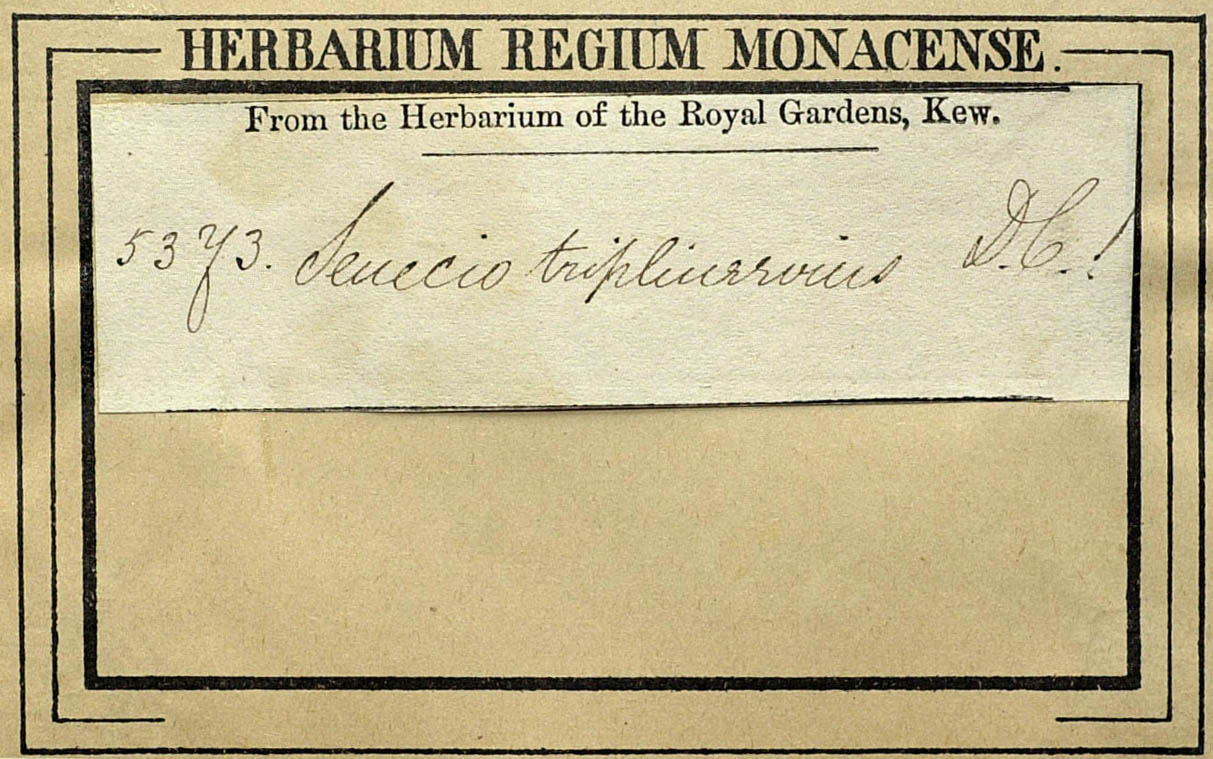 HERBARIUM REGIUM MONACENSE.
From the Herbarium of the Royal Gardens, Kew.
5373. Senecio triplinervius D.C.!